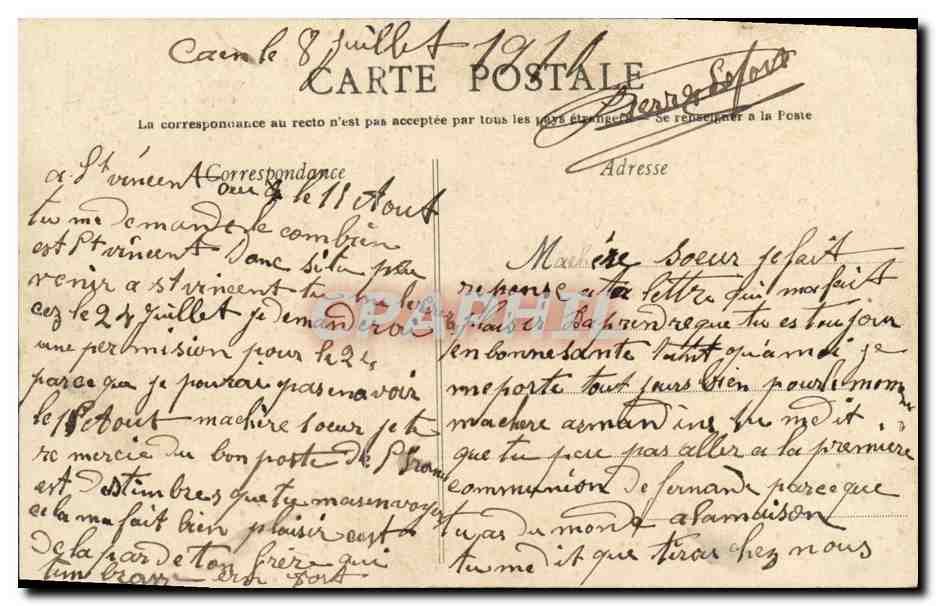 Caen le 8 juillet 1911
CARTE POSTALE
Pierre
La correspondance au recto n'est pas acceptée par tous les pays étrangers - Se renseigner a la Poste
Correspondance
Adresse
Ma chére soeur je fait
reponse a ta lettre qui ma fait
plaisir daprendre que tu es toujour
en bonne sante tant qua moi je
me porte tout jours bien pour le moment
ma chere armandine tu me dit
que tu peu pas aller a la premiére
communion de fernande parce que
tu as du monde a la maison
tu me dit que tirai chez nous
a St vincent ou le 15 Aout
tu me demande combien
est St vincent Donc si tu peu
venir a st vincent tu
le 24 Juillet je demanderai
une permision pour le 24
parce que je pourai pas en avoir
le 15 Aout ma chére soeur je te
remercie du bon poste de francs
est des timbres que tu mas envoyer
cela ma fait bien plaisir
de la par de ton frére qui
timbrasse bien fort